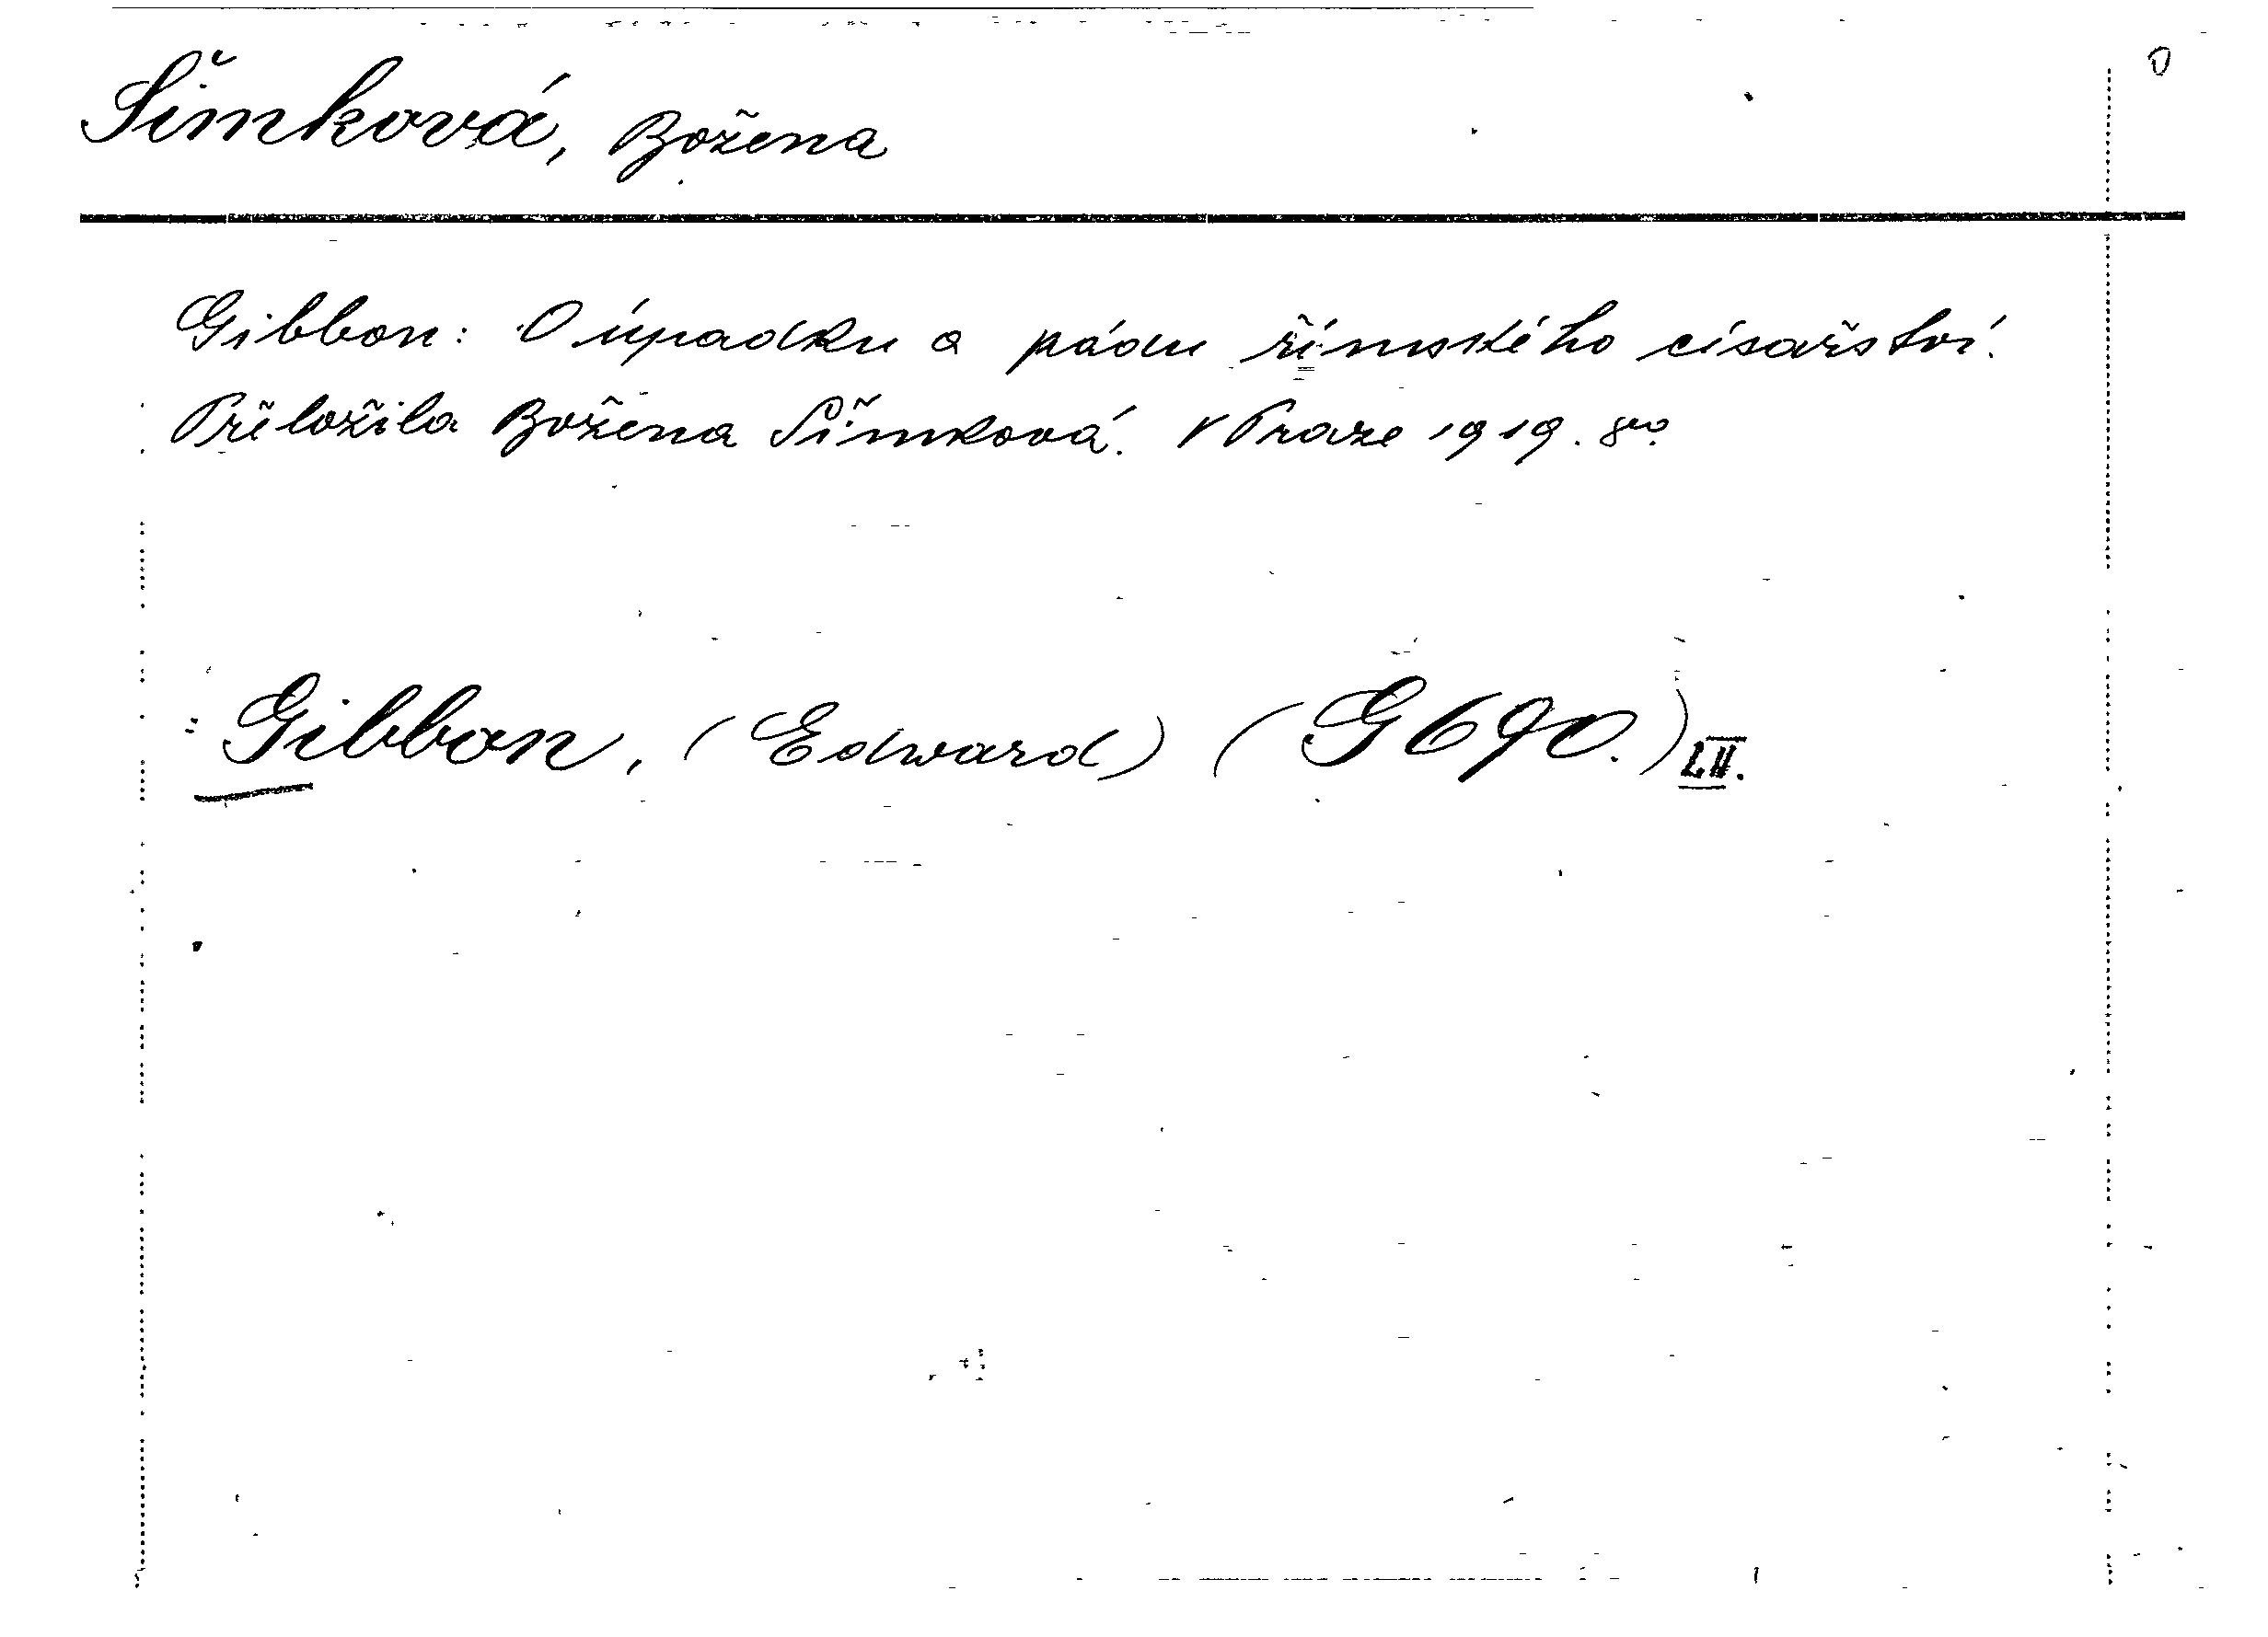 Šimková, Božena
Gibbon: O úpadku a pádu římského císařství.
Přeložila Božena Šimková. V Praze 1919. 8vo.
Gibbon, (Edward) (G 690.) LII.